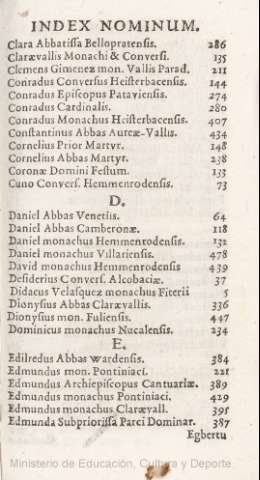 INDEX NOMINUM.
Clara Abbatissa Bellopratensis. 286
Clarævallis Monachi & Conversi. 135
Clemens Gimenez mon. Vallis Parad. 211
Conradus Conversus Heisterbacensis. 144
Conradus Episcopus Pataviensis. 274
Conradus Cardinalis. 280
Conradus Monachus Heisterbacensis. 407
Constantinus Abbas Aureæ-Vallis. 434
Cornelius Prior Martyr. 148
Cornelius Abbas Martyr. 238
Coronæ Domini Festum. 133
Cuno Convers. Hemmenrodensis. 73
D.
Daniel Abbas Venetiis. 64
Daniel Abbas Camberonæ. 118
Daniel monachus Hemmenrodensis. 132
Daniel monachus Villariensis. 478
David monachus Hemmenrodensis 439
Desiderius Convers. Alcobaciæ. 37
Didacus Velasquez monachus Fiterii 5
Dionysius Abbas Claræevallis. 336
Dionysius mon. Fuliensis. 447
Dominicus monachus Nucalensis. 234
E.
Edilredus Abbas Wardensis. 384
Edmundus mon. Pontiniaci. 221
Edmundus Archiepiscopus Cantuariæ. 389
Edmundus monachus Pontiniaci. 429
Edmundus monachus Claræevall. 395
Edmunda Subpriorissa Parci Dominar. 387
Egbertu
Ministerio de Educación, Cultura y Deporte